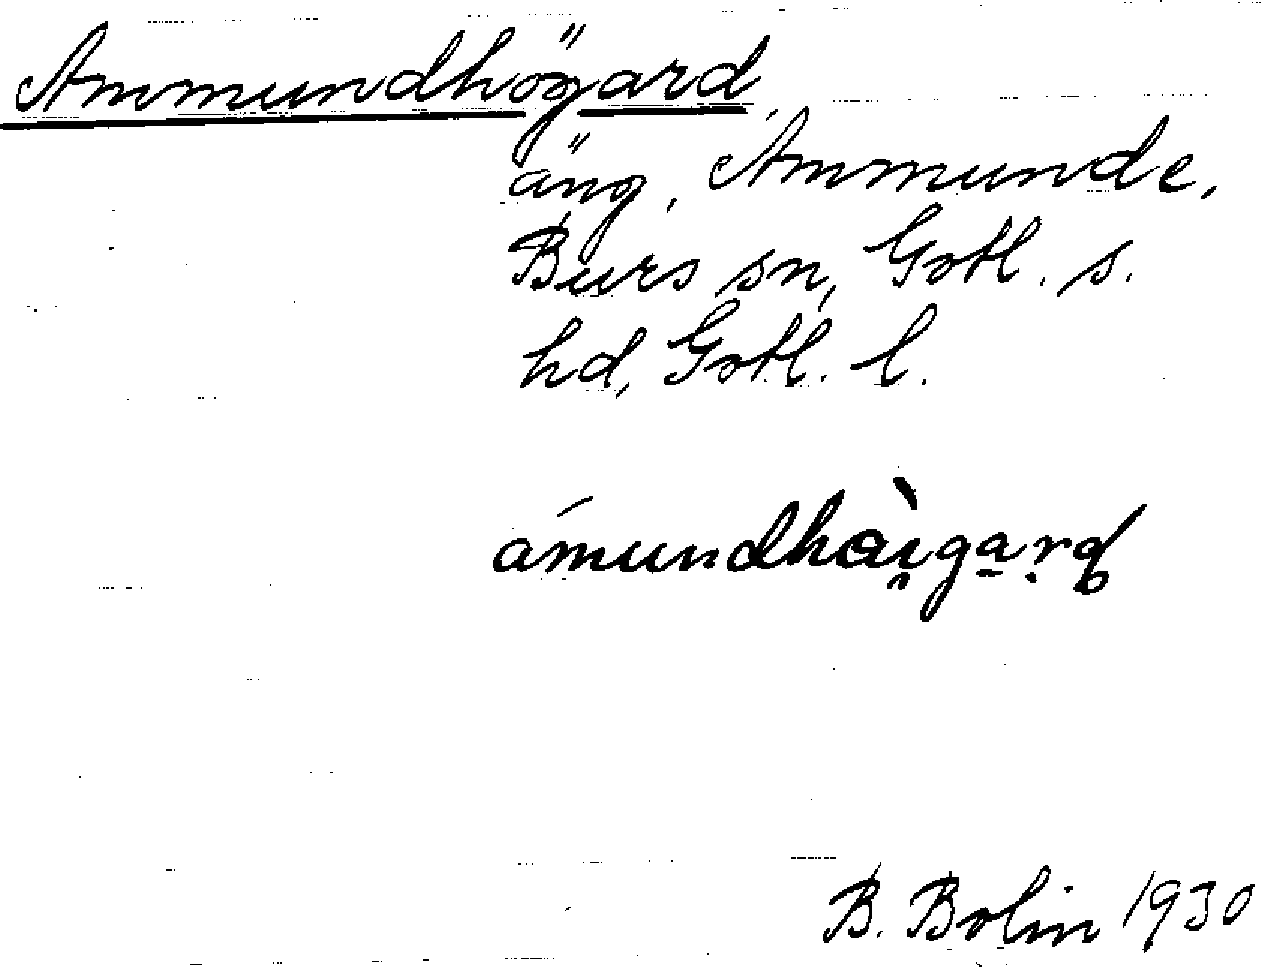 Ammundhögard
äng, Ammunde,
Burs sn, Gotl. s.
hd, Gotl. l.
ámundhàı̯ga̠ṛd
B. Bolin 1930